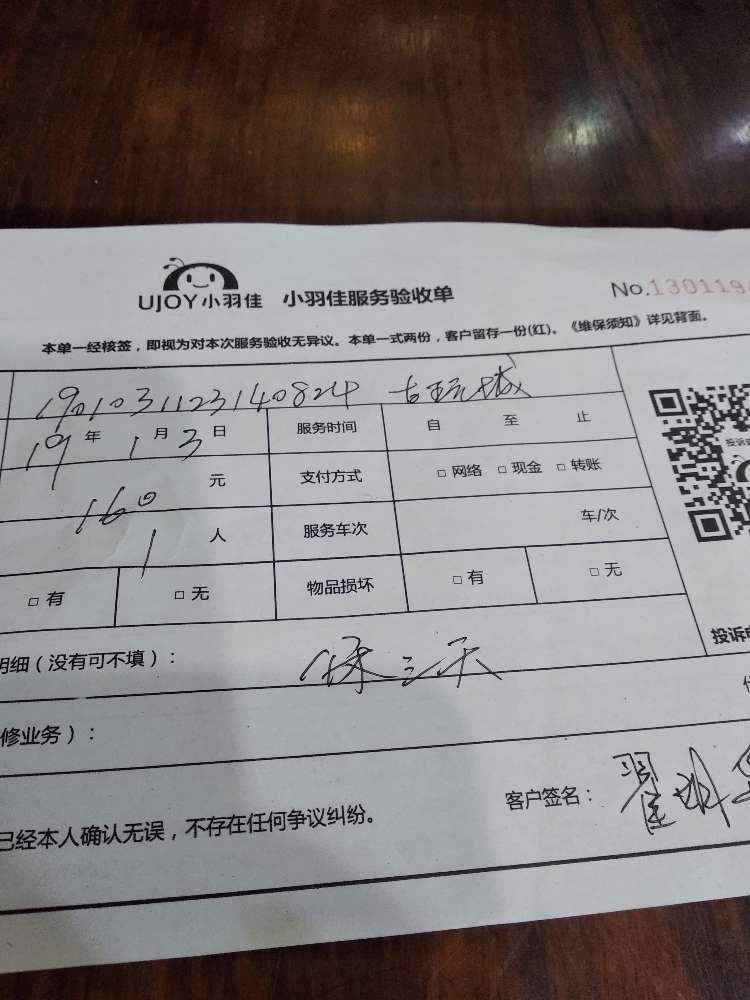 UJOY小羽佳 小羽佳服务验收单 No.130119
本单一经核签，即视为对本次服务验收无异议。本单一式两份，客户留存一份(红)。《维保须知》详见背面。
1901031123140824 古玩城
19年1月3日 服务时间 自 至 止
160元 支付方式 □网络 □现金 □转账
1人 服务车次 车/次
□有 □无 物品损坏 □有 □无
投诉
投诉电
明细（没有可不填）： 保三天
修业务）：
已经本人确认无误，不存在任何争议纠纷。 客户签名：